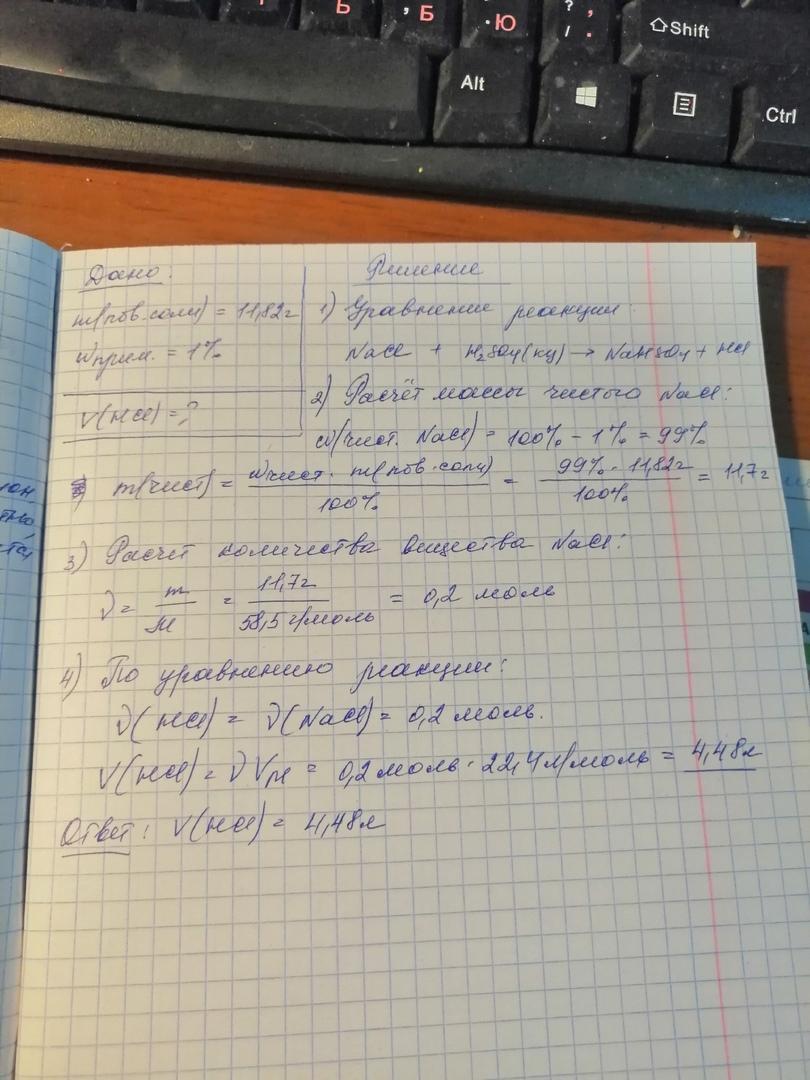 Ь
, Б
. Ю
? ,
/ .
Shift
Alt
Ctrl
Дано:
m(пов.соли) = 11,82г
ω прим. = 1%
V(HCl) = ?
Решение
1) Уравнение реакции:
NaCl + H₂SO₄(кц) → NaHSO₄ + HCl
2) Расчёт массы чистого NaCl:
ω(чист. NaCl) = 100% - 1% = 99%
m(чист) = ω чист. · m(пов.соли) / 100% = 99% · 11,82г / 100% = 11,7г
3) Расчет количества вещества NaCl:
ν = m / M = 11,7г / 58,5 г/моль = 0,2 моль
4) По уравнению реакции:
ν(HCl) = ν(NaCl) = 0,2 моль.
V(HCl) = ν Vм = 0,2 моль · 22,4 л/моль = 4,48л
Ответ: V(HCl) = 4,48л